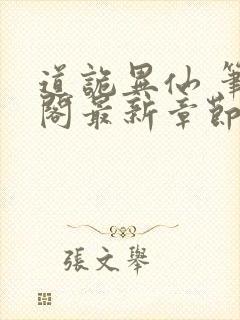 道詭異仙 筆
閣最新章節
張文舉